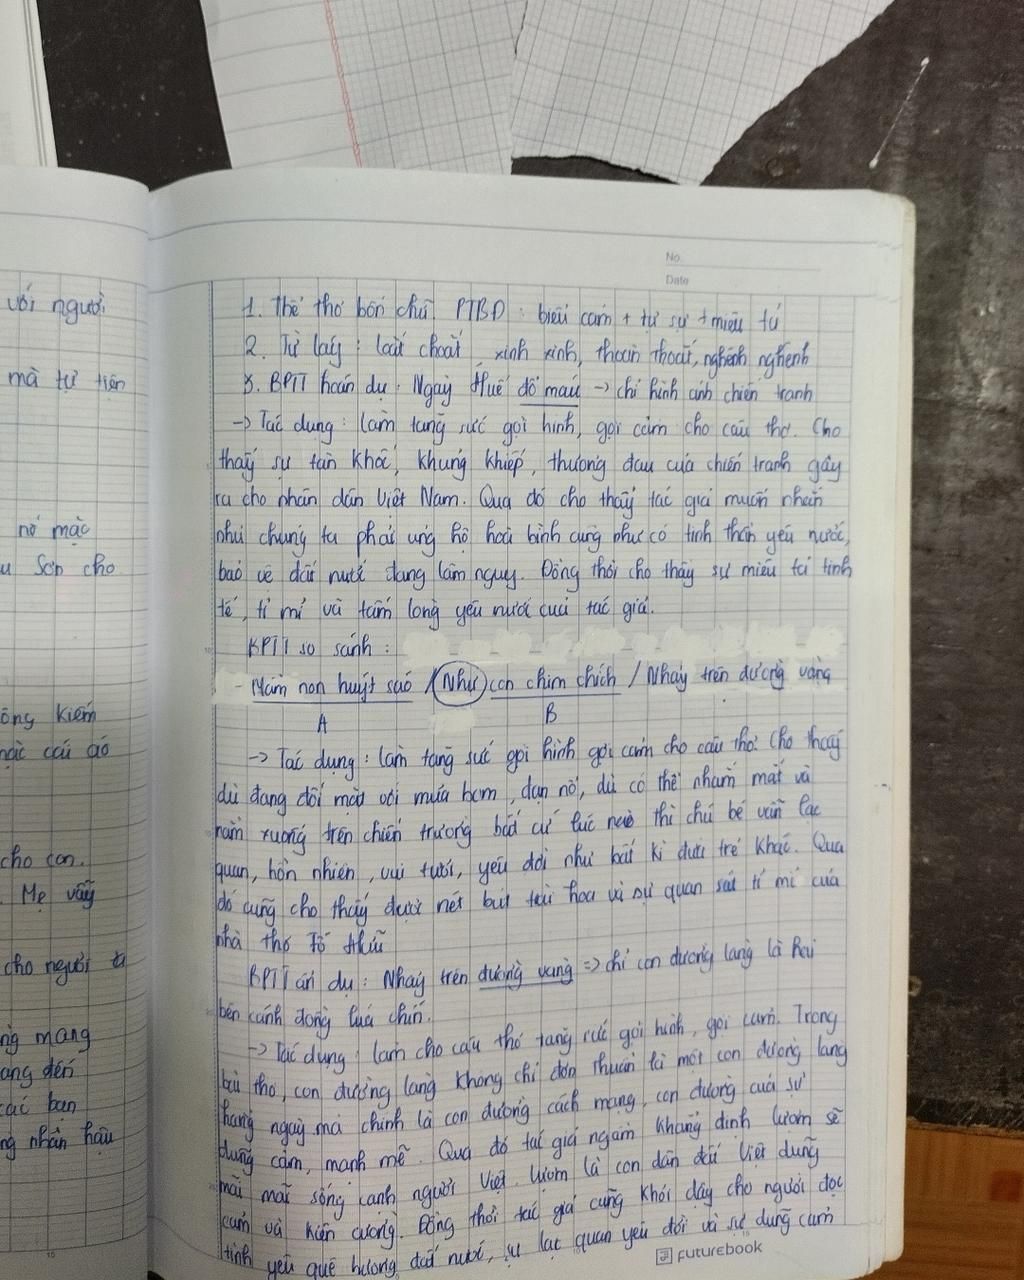 với người
mà tự tiện
nó mặc
Sơn cho
kiếm
cái áo
cho con.
Mẹ vẫy
cho người ta
mang
đến
các bạn
nhân hậu
No.
Date
1. Thể thơ bốn chữ. PTBĐ: biểu cảm + tự sự + miêu tả
2. Từ láy: loắt choắt, xinh xinh, thoăn thoắt, nghênh nghênh
3. BPTT hoán dụ: Ngày Huế đổ máu -> chỉ hình ảnh chiến tranh
-> Tác dụng: làm tăng sức gợi hình, gợi cảm cho câu thơ. Cho
thấy sự tàn khốc, khủng khiếp, thương đau của chiến tranh gây
ra cho nhân dân Việt Nam. Qua đó cho thấy tác giả muốn nhắn
nhủ chúng ta phải ủng hộ hoà bình cũng như có tinh thần yêu nước,
bảo vệ đất nước đang lâm nguy. Đồng thời cho thấy sự miêu tả tinh
tế, tỉ mỉ và tấm lòng yêu nước của tác giả.
BPTT so sánh:
- Mồm non huýt sáo / Như con chim chích / Nhảy trên đường vàng
A B
-> Tác dụng: làm tăng sức gợi hình gợi cảm cho câu thơ. Cho thấy
dù đang đối mặt với mưa bom, đạn nổ, dù có thể nhắm mắt và
nằm xuống trên chiến trường bất cứ lúc nào thì chú bé vẫn lạc
quan, hồn nhiên, vui tươi, yêu đời như bất kì đứa trẻ khác. Qua
đó cũng cho thấy được nét bút tài hoa và sự quan sát tỉ mỉ của
nhà thơ Tố Hữu
BPTT ẩn dụ: Nhảy trên đường vàng => chỉ con đường làng là hai
bên cánh đồng lúa chín.
-> Tác dụng: làm cho câu thơ tăng sức gợi hình, gợi cảm. Trong
bài thơ, con đường làng không chỉ đơn thuần là một con đường làng
hàng ngày mà chính là con đường cách mạng, con đường của sự
dũng cảm, mạnh mẽ. Qua đó tác giả ngầm khẳng định Lượm sẽ
mãi mãi sống cạnh người Việt. Lượm là con dân đất Việt dũng
cảm và kiên cường. Đồng thời tác giả cũng khơi dậy cho người đọc
tình yêu quê hương đất nước, sự lạc quan yêu đời và sự dũng cảm
FUTUREBOOK